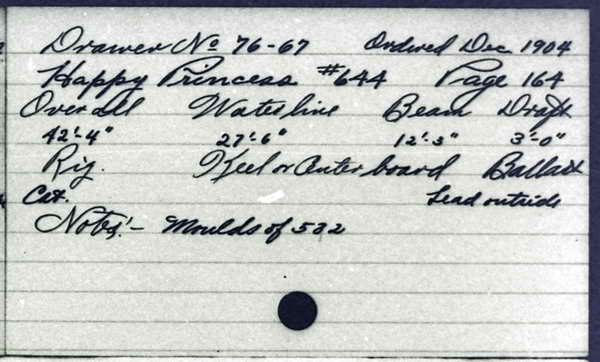 Drawer No 76-67 Ordered Dec 1904
Happy Princess #644 Page 164
Over all Waterline Beam Draft
42'-4" 27'-6" 12'-3" 3'-0"
Rig. Keel or Centerboard Ballast
Cat. Lead outside
Notes:- Moulds of 532